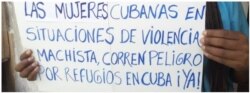 LAS MUJERES CUBANAS EN
SITUACIONES DE VIOLENCIA
MACHISTA, CORREN PELIGRO
POR REFUGIOS EN CUBA ¡YA!